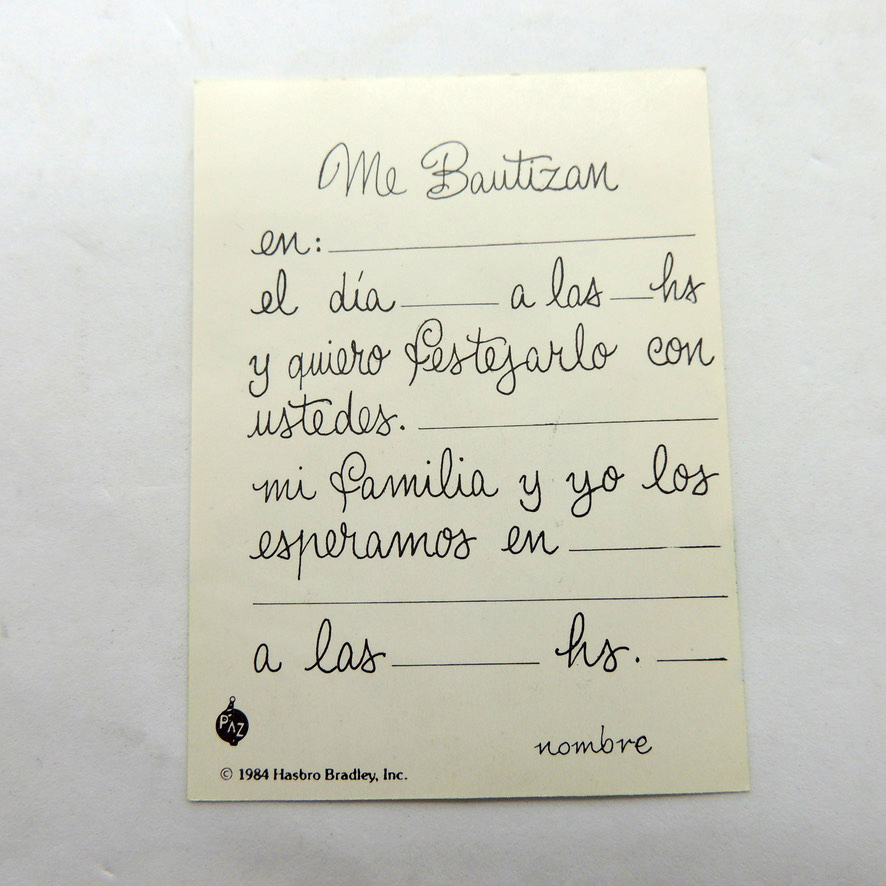 Me Bautizan
en: ____________________
el día ______ a las ___ hs
y quiero festejarlo con
ustedes. ____________________
mi familia y yo los
esperamos en __________
______________________________
a las __________ hs. _____
PAZ
nombre
© 1984 Hasbro Bradley, Inc.